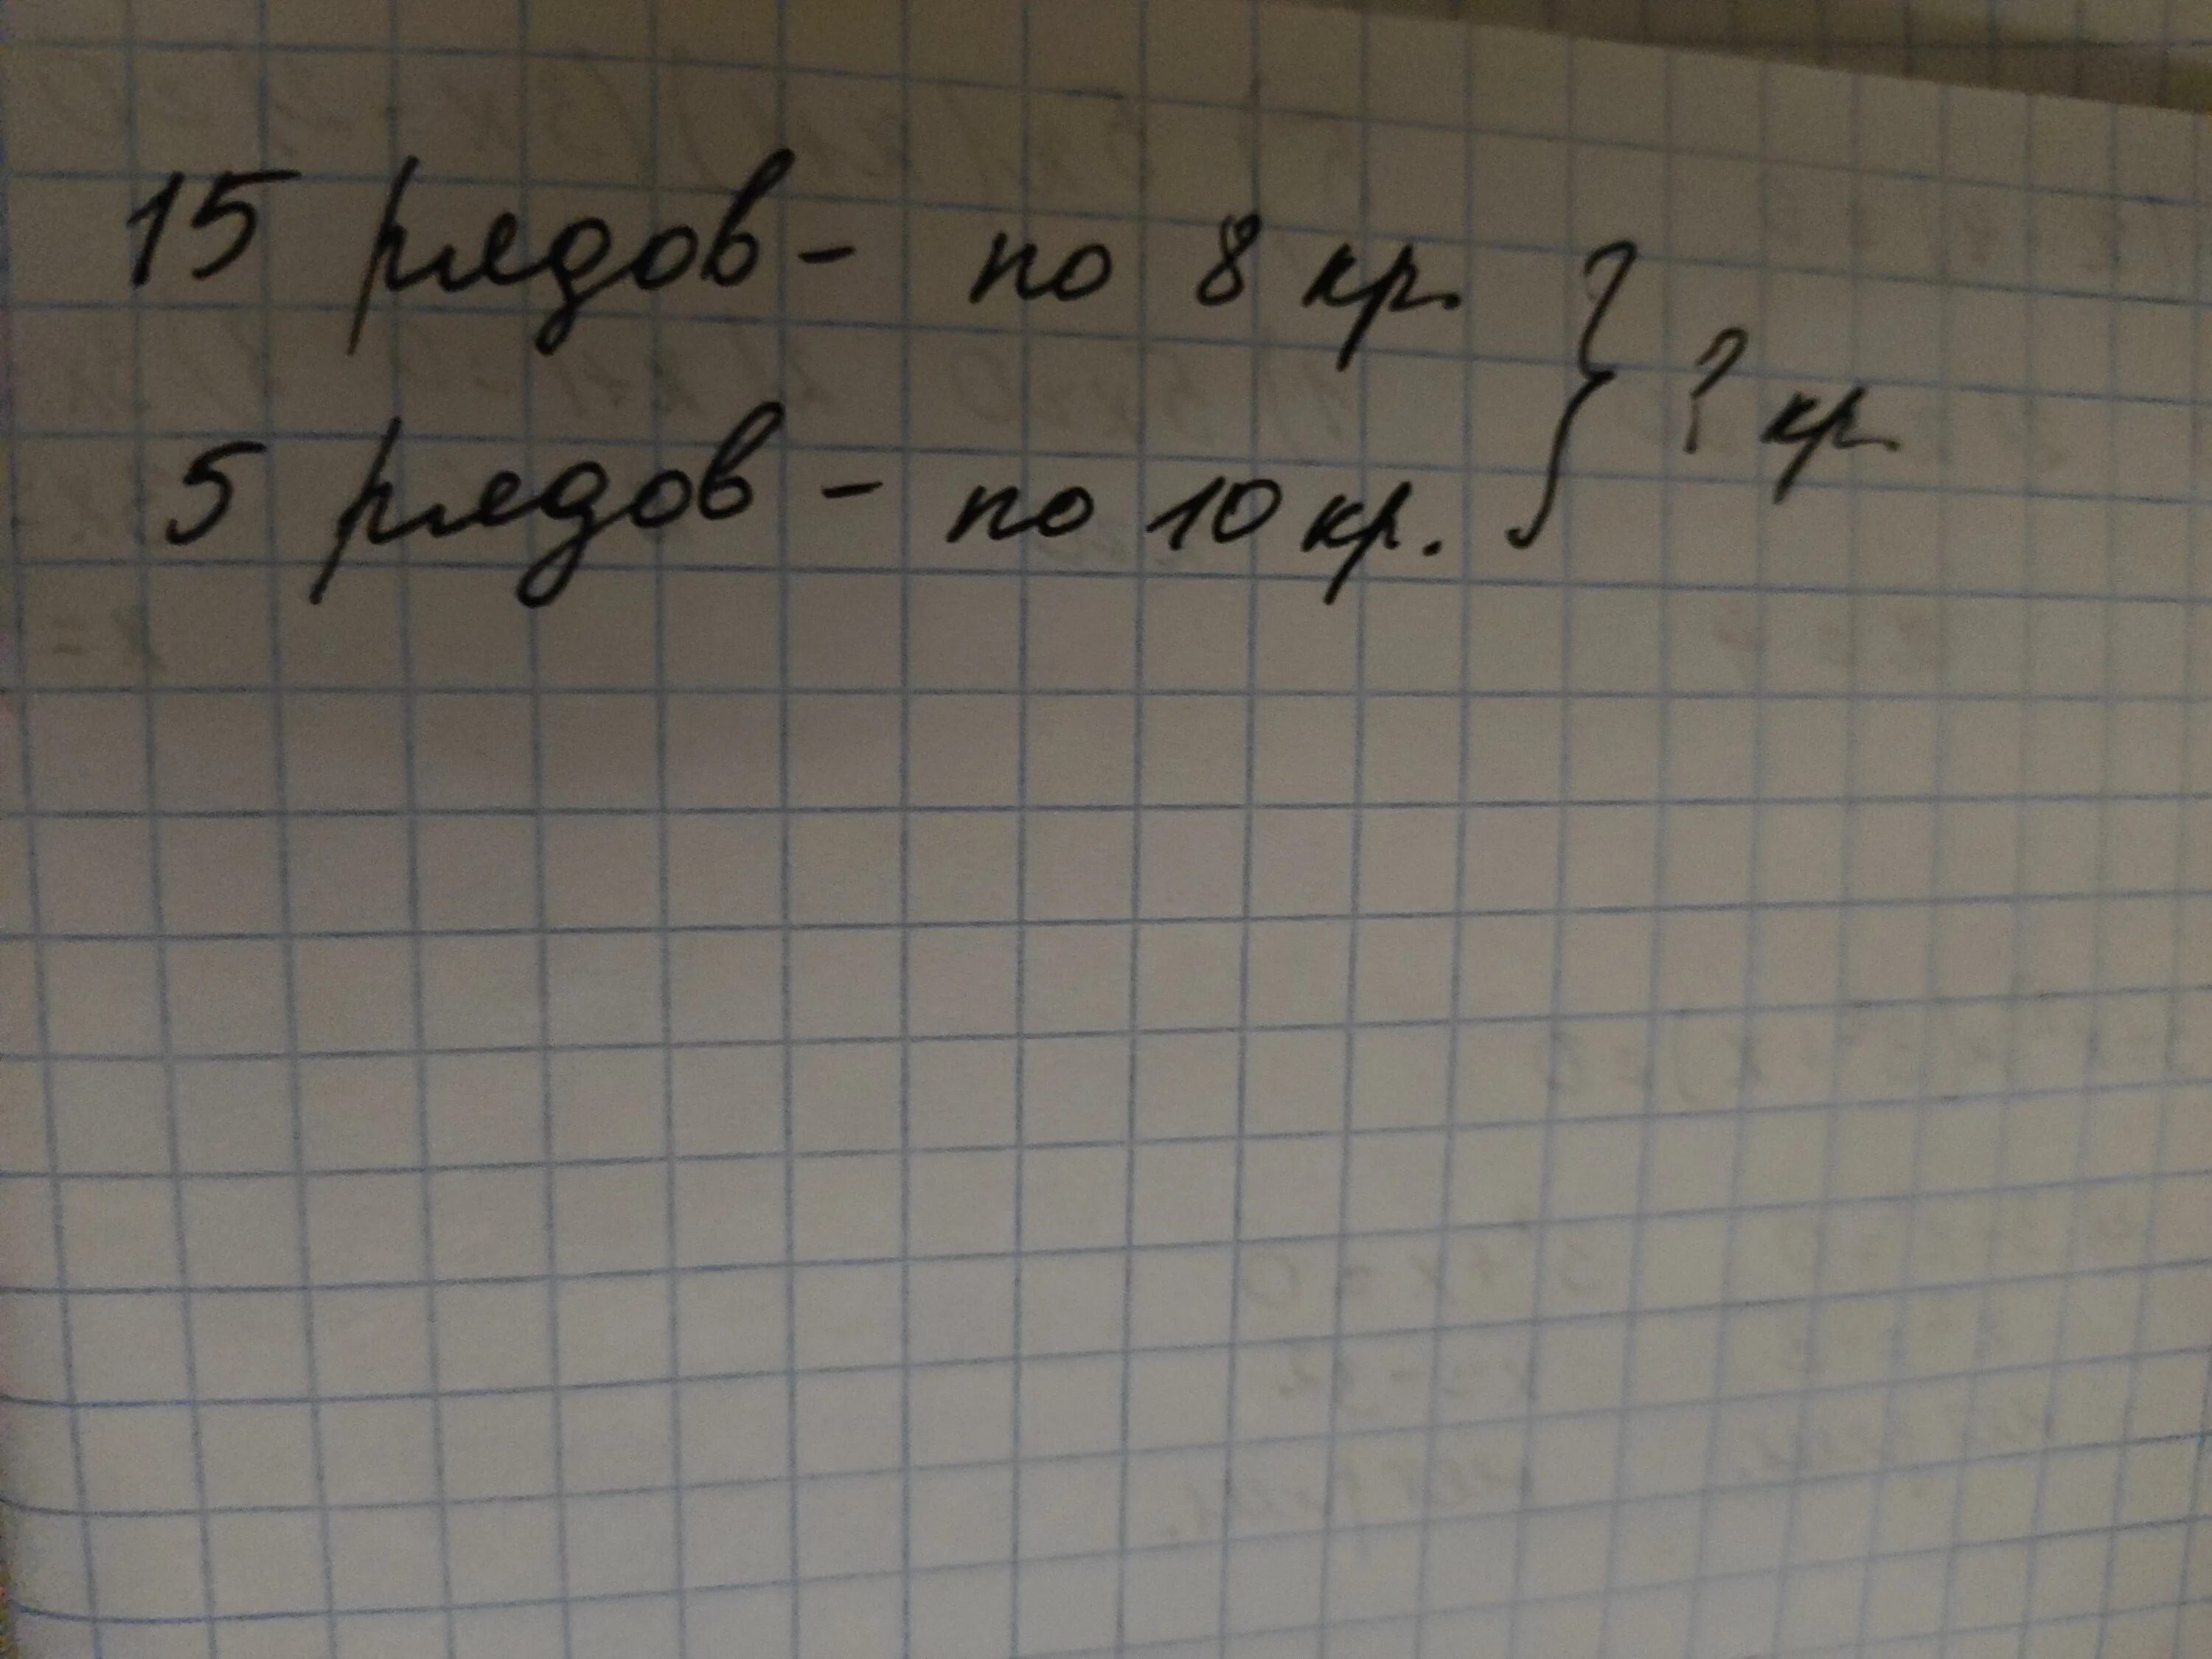 15 рядов - по 8 кр.
? кр.
5 рядов - по 10 кр.